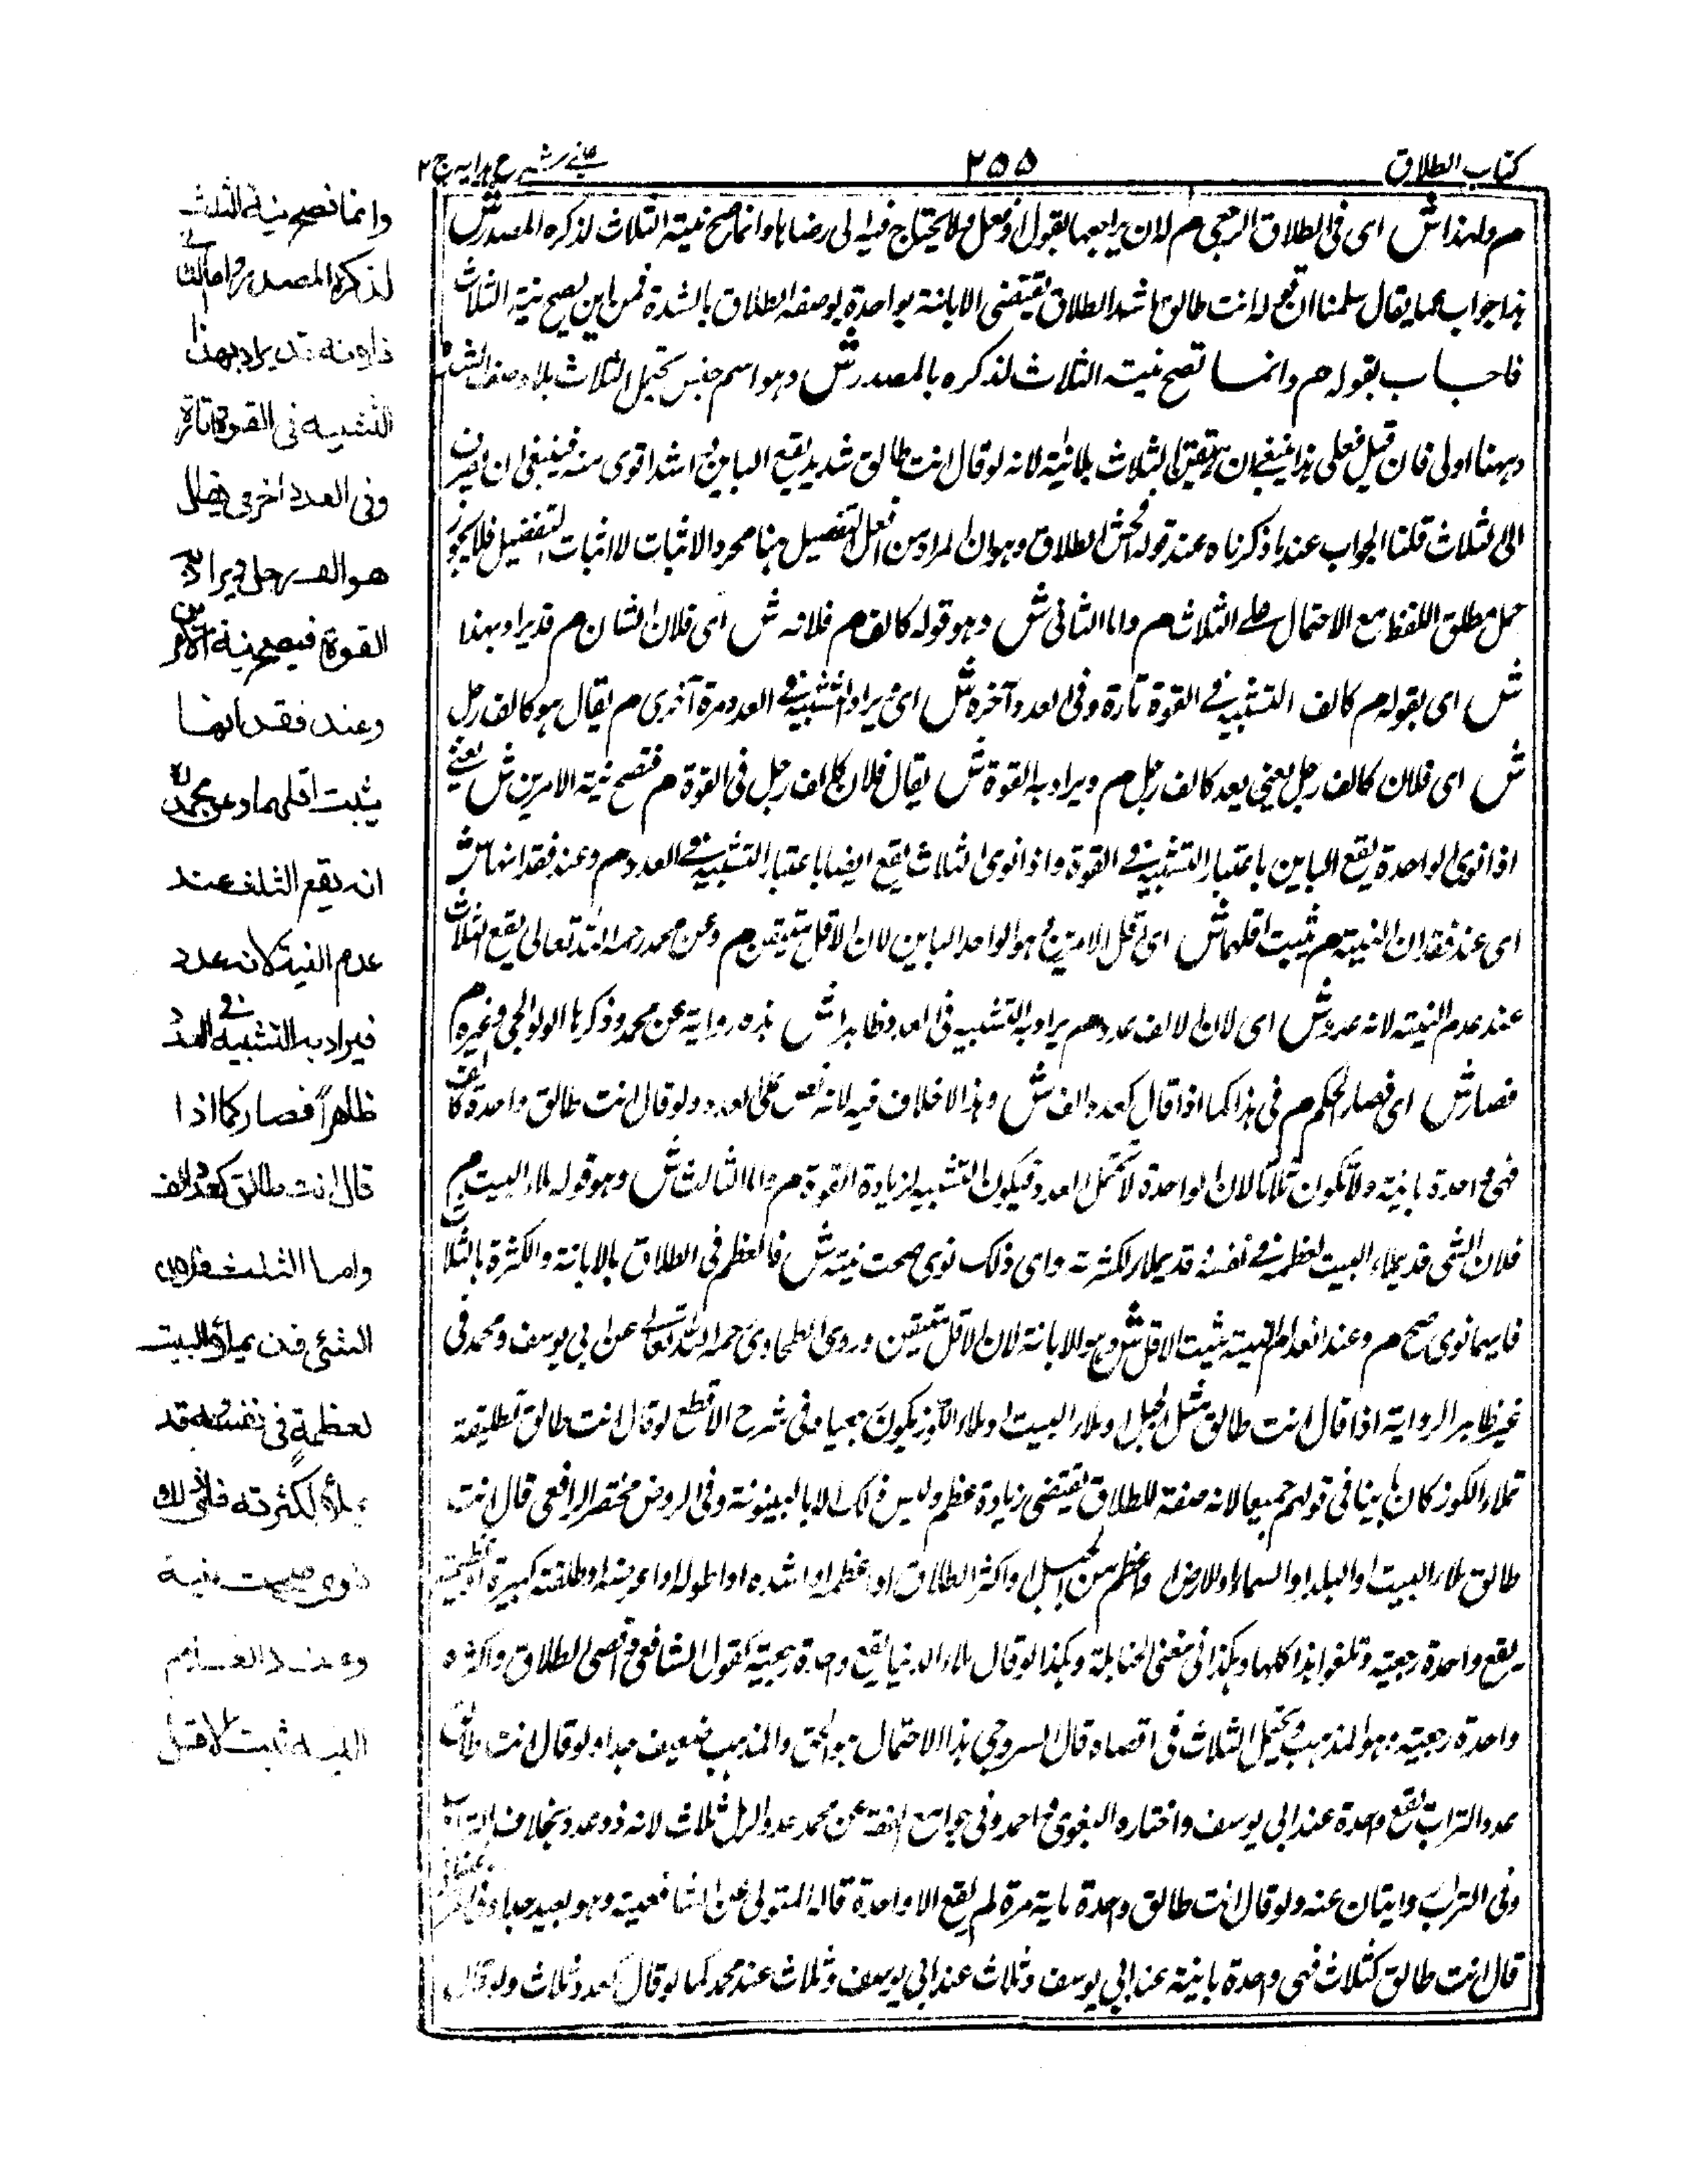 كتاب الطلاق
٢٥٥
عينى شرح هدايه ج ٢
م ولهذا ش اى فى الطلاق الرجعى م له ان يراجعها بالقول او الفعل ولا يحتاج فيه الى رضاها وانما تصح نية الثلاث لذكره المصدر ش
هذا جواب عما يقال سلمنا ان قوله انت طالق اشد الطلاق يقتضى الابانة بواحدة لوصفه الطلاق بالشدة فمن اين يصح نية الثلاث
فاجاب بقوله م وانما تصح نية الثلاث لذكره بالمصدر ش وهو اسم جنس يحتمل الثلاث بلا وصف الشدة
وههنا اولى فان قيل فعلى هذا ينبغى ان يقع الثلاث بلا نية لانه لو قال انت طالق شديد يقع الباين واشد اقوى منه فينبغى ان يصرف
الى الثلاث قلنا الجواب عنه ما ذكرناه عند قوله افحش الطلاق وهو ان المراد من افعل التفضيل هنا مجرد الاثبات لا اثبات التفضيل فلا يجوز
حمل مطلق اللفظ مع الاحتمال على الثلاث م واما الثانى ش وهو قوله كالف م فلانه ش اى فلان الشان م قد يراد بهذا
ش اى بقوله م كالف التشبيه فى القوة تارة وفى العدد آخره ش اى يراد التشبيه فى العدد مرة آخرى م يقال هو كالف رجل
ش اى فلان كالف رجل يعنى يعد كالف رجل م ويراد به القوة ش يقال فلان كالف رجل فى القوة م فتصح نية الامرين ش يعنى
اذا نوى الواحدة يقع الباين باعتبار التشبيه فى القوة واذا نوى الثلاث يقع ايضا باعتبار التشبيه فى العدد م وعند فقدانها ش
اى عند فقدان النية م يثبت اقلهما ش اى اقل الامرين وهو الواحد الباين لان الاقل متيقن م وعن محمد رحمه الله تعالى يقع الثلاث
عند عدم النية لانه عدد ش اى لان الالف عدد م يراد به التشبيه فى العدد ظاهرا ش هذه رواية عن محمد وذكرها الولوالجى وغيره م
فصار ش اى فصار الحكم م فى هذا كما اذا قال كعدد الف ش وهذا لا خلاف فيه لانه نص على العدد ولو قال انت طالق واحدة كالف
فهى واحدة باينة ولا تكون ثلاثا لان الواحدة لا تحتمل العدد فيكون التشبيه لزيادة القوة م واما الثالث ش وهو قوله ملأ البيت م
فلان الشئ قد يملاء البيت لعظمه فى نفسه وقد يملأ لكثرته واى ذلك نوى صحت نيته ش فالعظم فى الطلاق بالابانة والكثرة بالثلاث
فايهما نوى صح م وعند انعدام النية يثبت الاقل ش وهو الابانة لان الاقل متيقن وروى الطحاوى رحمه الله تعالى عن ابى يوسف ومحمد فى
غير ظاهر الرواية اذا قال انت طالق مثل الجبل او ملأ البيت او ملأ الكوز يكون رجعيا وفى شرح الاقطع لو قال انت طالق تطليقة
تملأ الكوز كان باينا فى قولهم جميعا لانه صفة للطلاق يقتضى زيادة عظم وليس ذلك الا بالبينونة وفى الروض مختصر الرافعى قال انت
طالق ملأ البيت او البلد او السماء او الارض او اعظم من الجبل او اكثر الطلاق او اعظمه او اشده او اطوله او اعرضه او طلقة كبيرة او عظيمة
يقع واحدة رجعية وتلغو هذا كلها وهكذا فى مغنى الحنابلة وهكذا لو قال ملأ الدنيا يقع واحدة رجعية كقول الشافعى واقصى الطلاق واكثره
واحدة رجعية وهو المذهب ويحتمل الثلاث فى اقصاه قال السروجى هذا الاحتمال هو الحق والمذهب ضعيف جدا ولو قال انت طالق
عدد التراب يقع واحدة عند ابى يوسف واختاره البغوى واحمد وفى جوامع الفقه عن محمد عدد الرمل ثلاث لانه ذو عدد بخلاف التراب
وفى التراب روايتان عنه ولو قال انت طالق واحدة ماية مرة لم يقع الا واحدة قاله المتولى عن الشافعية وهو بعيد جدا
قال انت طالق كثلاث فهى واحدة باينة عند ابى يوسف وثلاث عند ابى يوسف وثلاث عند محمد كما لو قال كعدد ثلاث ولو قال
وانما تصح نية الثلث
لذكره المصدر واما الثانى
فلانه قد يراد بهذا
التشبيه فى القوة تارة
وفى العدد اخرى يقال
هو الف رجل ويراد به
القوة فيصح نية الامرين
وعند فقدانها
يثبت اقلهما وعن محمد رح
انه يقع الثلث عند
عدم النية لانه عدد
فيراد به التشبيه فى العدد
ظاهرا فصار كما اذا
قال انت طالق كعدد الف
واما الثلث فلان
الشئ قد يملأ البيت
لعظمة فى نفسه وقد
يملأه لكثرته فاى ذلك
نوى صحت نيته
وعند انعدام
النية ثبت الاقل